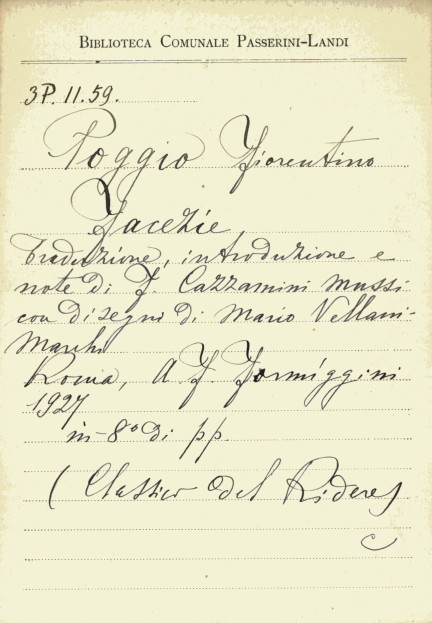 BIBLIOTECA COMUNALE PASSERINI-LANDI
3P. 11. 59.
Poggio Fiorentino
Facezie
Traduzione, introduzione e
note di F. Cazzamini Mussi
con disegni di Mario Vellani-
Marchi
Roma, A. F. Formiggini
1927
in-8º di pp.
(Classici del Ridere)